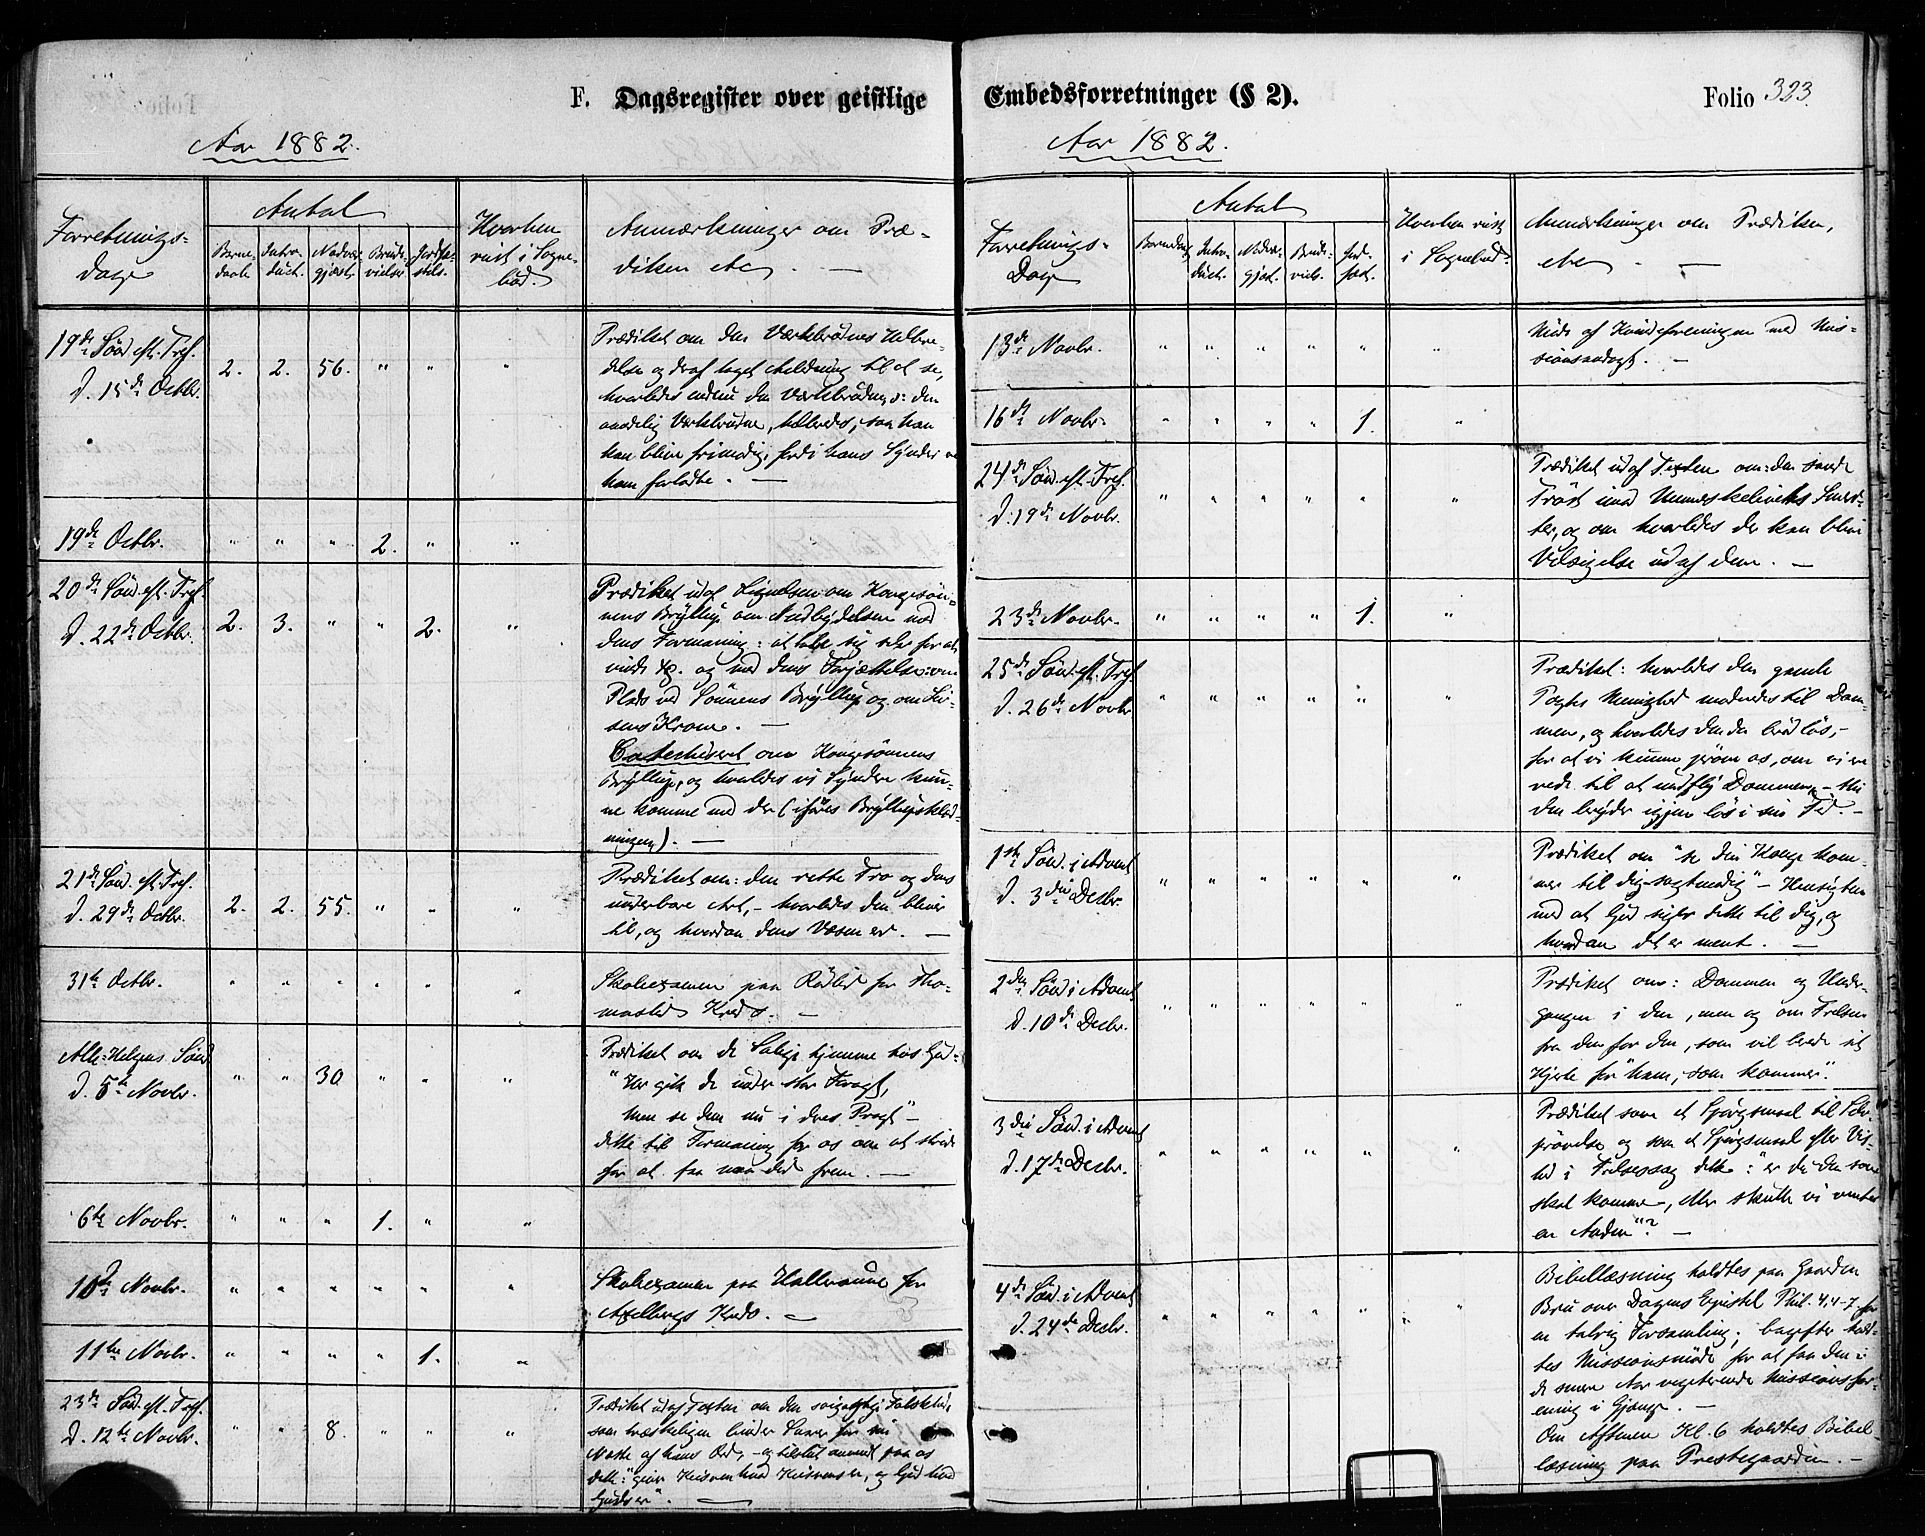 F. Dagsregister over geistlige
Aar 1882.
Forretnings-
dage
Antal
Barne-
daab
Intro-
duct.
Nadver-
gjæst.
Brude-
vielser
Jordfæ-
stels.
Hvorhen
reist i Sogne-
bud.
Anmærkninger om Præ-
diken etc. —
19de Sönd. eft. Tref.
d. 15de Octbr.
2. 2. 56. " " "
Prædiket om den Værkbrudnes Helbre-
delse og deraf taget Anledning til at se,
hvorledes endnu den Værkbrudne, o: den
aandelig Værkbrudne, helbredes, saa han
kan blive frimodig, fordi hans Synder er
ham forladte. —
19de Octbr.
" " " 2. " "
20de Sönd. eft. Tref.
d. 22de Octbr.
2. 3. " " 2. "
Prædiket ud af Lignelsen om Kongesön-
nens Bryllup, om Indbydelsen med
dens Formaning: at
vinde &. og med dens Forjættelse: om
Plads ved Sönnens Bryllup og om Li-
vens Krone. —
Catechiseret om Kongesönnens
Bryllup, og hvorledes vi Syndere kun-
ne komme med der (iföres Bryllupsklæd-
ningen). —
21de Sönd. eft. Tref.
d. 29de Octbr.
2. 2. 55. " " "
Prædiket om: den rette Tro og dens
underbare Art, - hvorledes den bliver
til, og hvordan dens Væsen er. —
31te Octbr.
" " " " " "
Skoleexamen paa Rödlid for Tho-
maslid Kreds. —
Alle-Helgens Sönd.
d. 5te Novbr.
" " 30 " " "
Prædiket om de Salige hjemme hos Gud:
"Her gik de under stor Foragt,
men se dem nu i deres Pragt" -
dette til Formaning for os om at stride
for at faa naa did frem. —
6te Novbr.
" " " 1. " "
10de Novbr.
" " " " " "
Skoleexamen paa for
Axelbergs Kreds. —
11te Novbr.
" " " " 1. "
23de Sönd. eft. Tref.
d. 12te Novbr.
" " 8. " " "
Prædiket ud af Texten om den Falskhed,
som Snarer for sin
Næste af hans Ord, - og tilsidst anvendt paa os
dette: "giver Keiseren hvad Keiserens er, og Gud hvad
Guds er". —
Embedsforretninger (§ 2).
Folio 323.
Aar 1882.
Forretnings-
Dage
Antal
Barnedaab
Intro-
duct.
Nadver-
gjæst.
Brude-
viels.
Jord-
fæst.
Hvorhen reist
i Sognebud.
Anmærkninger om Prædiken,
etc —
13de Novbr.
" " " " " "
Möde af Kvindeforeningen med Mis-
sionsandagt. —
16de Novbr.
" " " " 1. "
24de Sönd. eft. Tref.
d. 19de Novbr.
" " " " " "
Prædiket ud af Texten om: den sande
Tröst imod Menneskelivets Smer-
ter, og om hvorledes der kan blive
Velsignelse ud af dem. —
23de Novbr.
" " " " 1. "
25de Sönd. eft. Tref.
d. 26de Novbr
" " " " " "
Prædiket: hvorledes den gamle
Pagts Menighed modnedes til Dom-
men, og hvorledes den da bröd lös, -
for at vi kunne pröve os, om vi er
rede til at undfly Dommen, - thi
den bryder igjen lös i sin Tid. —
1ste Sönd. i Advent
d. 3die Decbr.
" " " " " "
Prædiket om "se din Konge kom-
mer til dig sagtmodig" - Hensigten
med at Gud siger dette til dig, og
hvordan det er ment. —
2den Sönd. i Advent
d. 10de Decbr.
" " " " " "
Prædiket om: Dommen og Under-
gangen i den, men og om Frelsen
fra den for den, som vil berede sit
Hjerte for "ham, som kommer".
3die Sönd. i Advent
d. 17de Decbr.
" " " " " "
Prædiket som et Spörgsmaal til Selv-
prövelse og som et Spörgsmaal efter Vis-
hed i Frelsessag dette: "er du den som
skal komme, eller skulle vi vente
en Anden"? —
4de Sönd. i Advent
d. 24de Decbr.
" " " " " "
Bibellæsning holdtes paa Gaarden
Bru over Dagens Epistel Phil. 4,4-7 for
en talrig Forsamling; bagefter hold-
tes Missionsmöde for at faa den i
de senere Aar vegeterende Missionsfor-
ening i Gjænge. —
Om Aftenen Kl. 6 holdtes Bibel-
læsning paa Prestegaarden. —